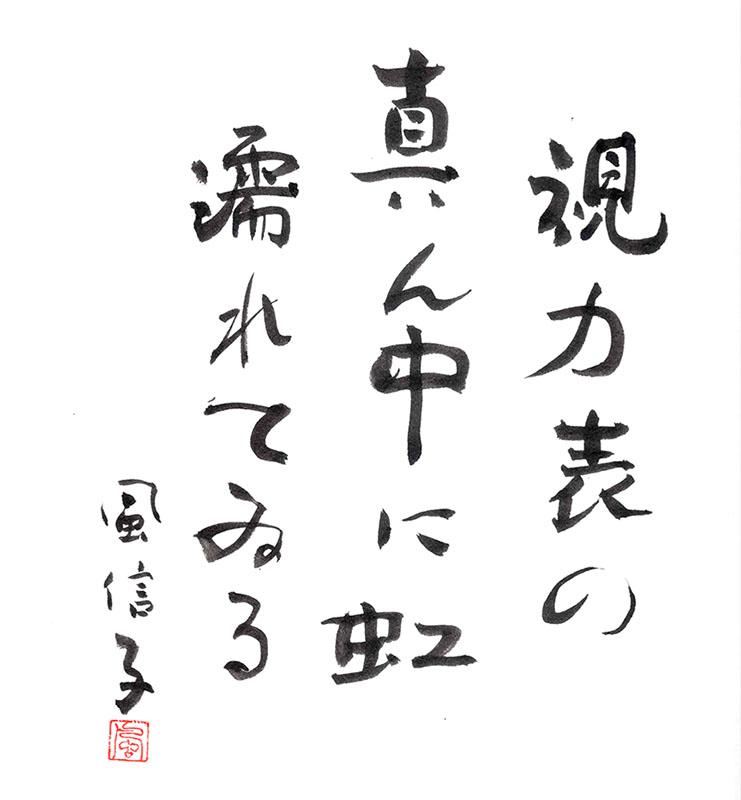 視力表の
真ん中に虹
濡れてゐる
風信子
風